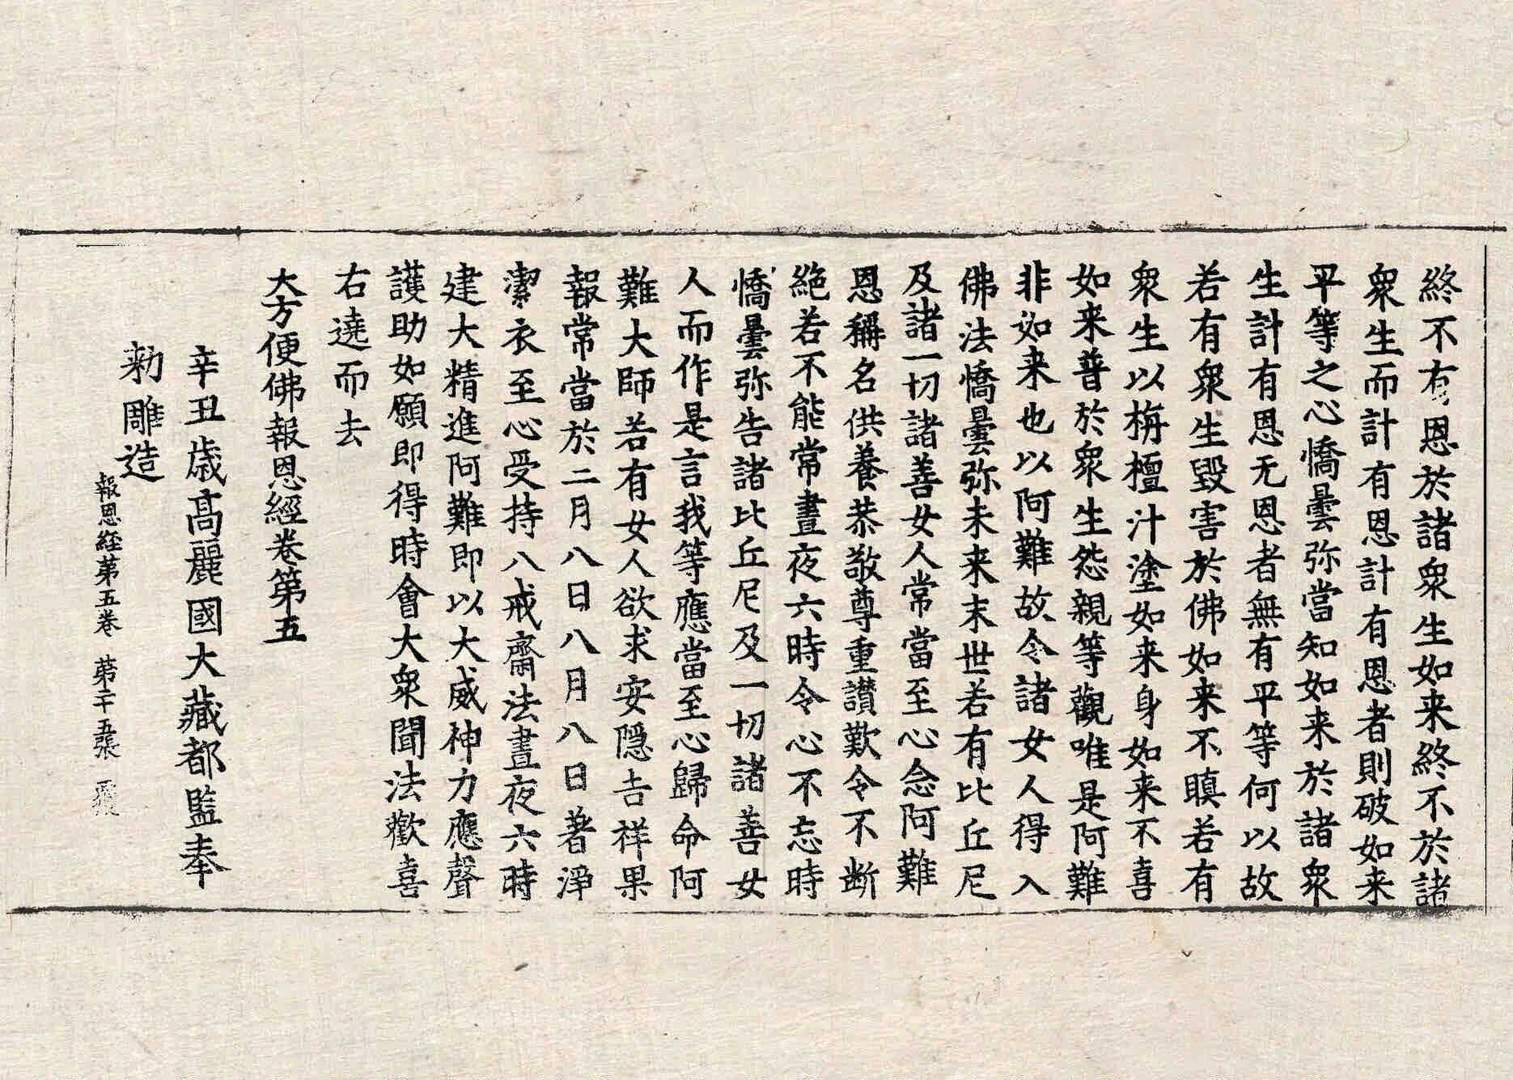 終不有恩於諸衆生如来終不於諸
衆生而計有恩計有恩者則破如来
平等之心憍曇弥當知如来於諸衆
生計有恩无恩者無有平等何以故
若有衆生毀害於佛如来不瞋若有
衆生以栴檀汁塗如来身如来不喜
如来普於衆生怨親等觀唯是阿難
非如来也以阿難故令諸女人得入
佛法憍曇弥未来末世若有比丘尼
及諸一切諸善女人常當至心念阿難
恩稱名供養恭敬尊重讃歎令不断
絶若不能常晝夜六時令心不忘時
憍曇弥告諸比丘尼及一切諸善女
人而作是言我等應當至心歸命阿
難大師若有女人欲求安隱吉祥果
報常當於二月八日八月八日著淨
潔衣至心受持八戒齋法晝夜六時
建大精進阿難即以大威神力應聲
護助如願即得時會大衆聞法歡喜
右遶而去
大方便佛報恩經卷第五
辛丑歳高麗國大藏都監奉
勑雕造
報恩経第五巻 苐二十五張